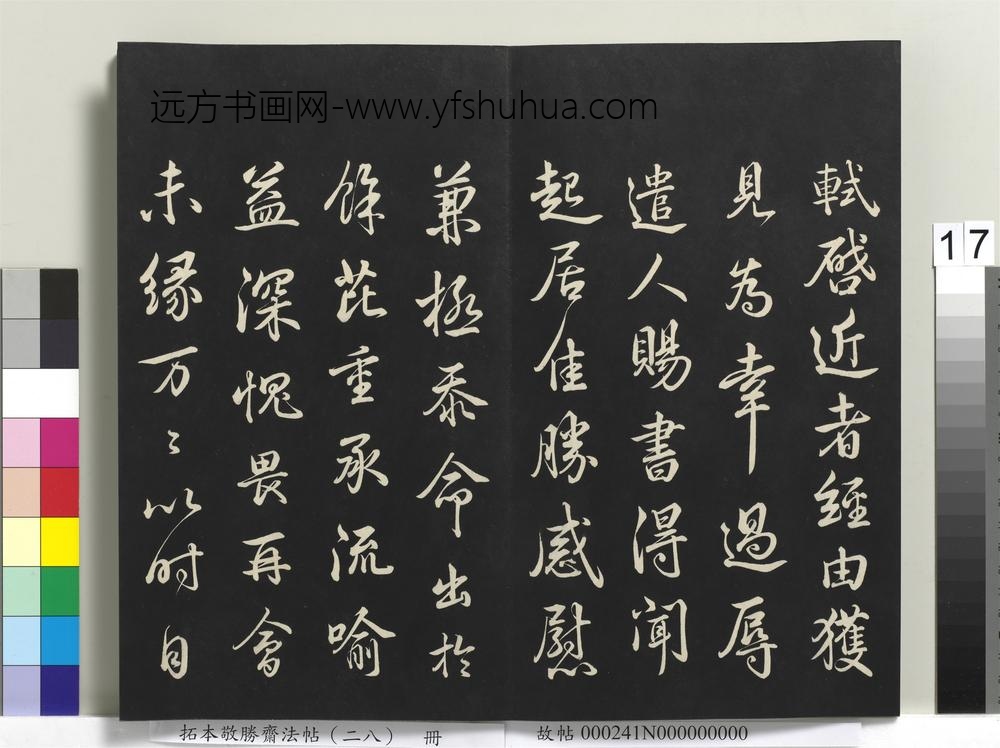 远方书画网-www.yfshuhua.com
軾啓近者經由獲
見為幸過辱
遣人賜書得聞
起居佳勝感慰
兼極忝命出於
餘芘重承流喻
益深愧畏再會
未緣万〻以时自
17
拓本敬勝齋法帖（二八） 冊
故帖 000241N000000000